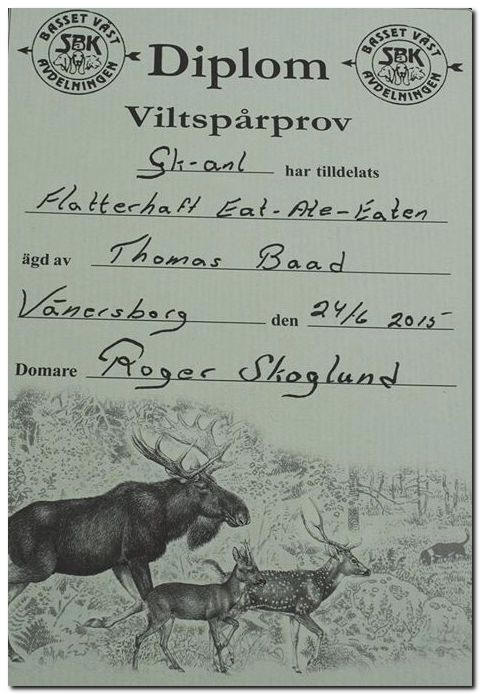 BASSET VÄST
SBK
AVDELNINGEN
BASSET VÄST
SBK
AVDELNINGEN
Diplom
Viltspårprov
Gk-anl har tilldelats
Flatterhaft Eat-Ate-Eaten
ägd av Thomas Baad
Vänersborg den 24/6 2015
Domare Roger Skoglund